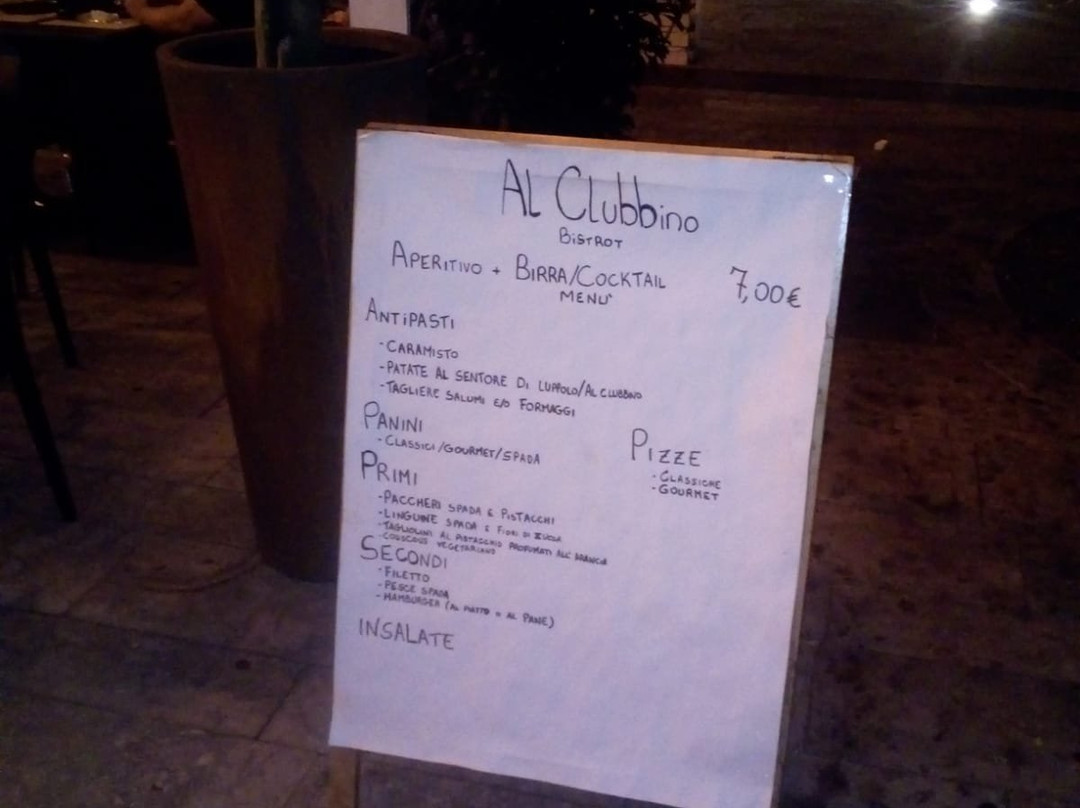 AL Clubbino
BISTROT
APERITIVO + BIRRA/COCKTAIL 7,00€
MENU'
ANTIPASTI
- CARAMISTO
- PATATE AL SENTORE DI LUPPOLO/AL CLUBBINO
- TAGLIERE SALUMI E/O FORMAGGI
PANINI
- CLASSICI/GOURMET/SPADA
PIZZE
- CLASSICHE
- GOURMET
PRIMI
- PACCHERI SPADA E PISTACCHI
- LINGUINE SPADA E FIORI DI ZUCCA
- TAGLIOLINI AL PISTACCHIO PROFUMATI ALL'ARANCIA
- COUSCOUS VEGETARIANO
SECONDI
- FILETTO
- PESCE SPADA
- HAMBURGER (AL PIATTO O AL PANE)
INSALATE